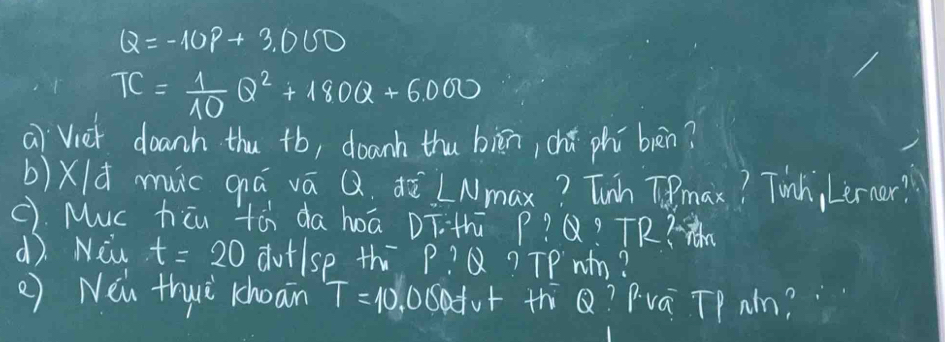 Q = -10P + 3.000
TC = 1/10 Q² + 180Q + 6.000
a) Viết doanh thu tb, doanh thu biên, chi phí biên?
b) X/đ mức giá và Q. để LNmax? Tính TPmax? Tính Lerner?
c). Mục tiêu tối đa hoá DT. thì P? Q? TR? ntn
d). Nếu t = 20 đvt/sp thì P? Q? TP ntn?
e) Nếu thuế khoán T = 10.000đvt thì Q? P và TP ntn?